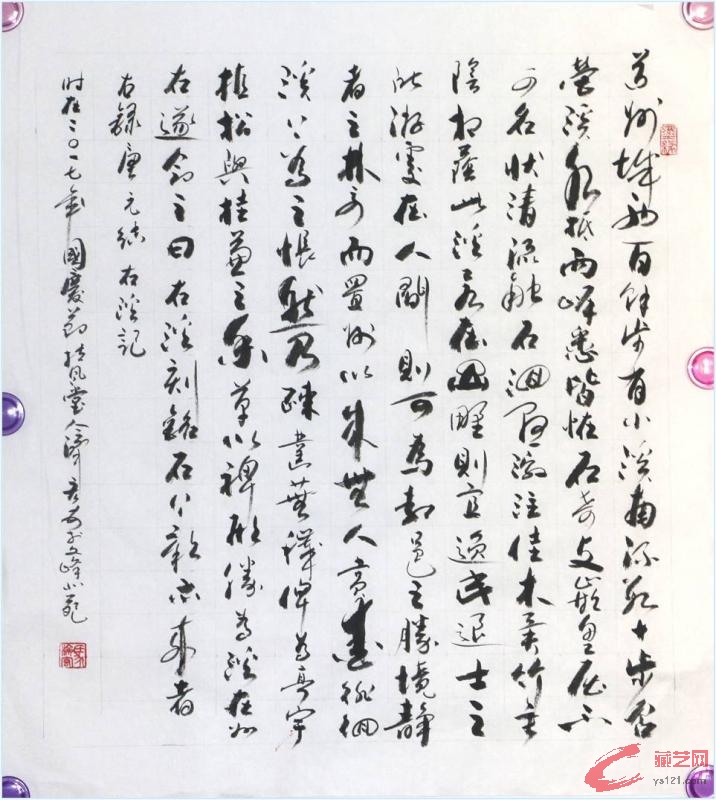 道州城西百餘步有小溪南流数十步合
營溪水抵兩岸悉皆怪石攲嵌盘屈不
可名狀清流觸石洄懸激注佳木異竹垂
陰相蔭此溪若在山野則宜逸民退士之
所游處在人間則可為都邑之勝境靜
者之林亭而置州以來無人賞愛徘徊
溪上為之悵然乃疎鑿蕪穢俾為亭宇
植松與桂兼之香草以裨形勝為溪在州
右遂命之曰右溪刻銘石上彰示來者
右錄唐元結右溪記
时在二〇一七年國慶節扶風堂人
藏艺网
ys121.com